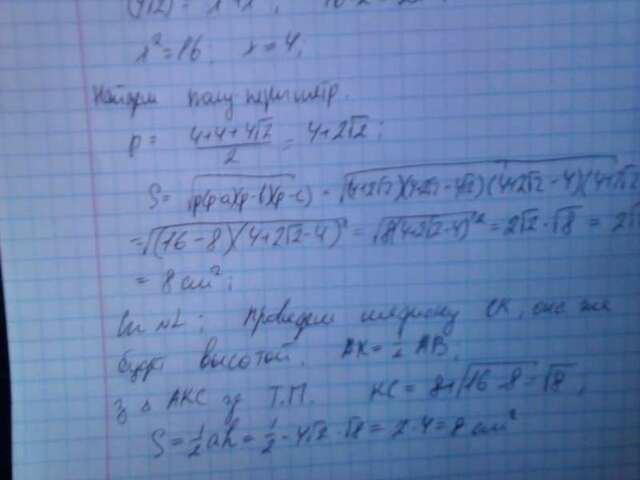 x² = 16; x = 4;
Найдем полупериметр.
p = (4+4+4√2)/2 = 4+2√2;
S = √(p(p-a)(p-b)(p-c)) = √((4+2√2)(4+2√2-4√2)(4+2√2-4)(4+√2
= √((16-8)(4+2√2-4)²) = √(8(4+2√2-4)²) = 2√2·√8 = 2√
= 8 см²;
Сп №2: Проведем медиану CK, она же
будет высотой. AK = ½ AB.
Из Δ AKC по Т.П. KC = √(16-8) = √8;
S = ½ah = ½·4√2·√8 = 2·4 = 8 см²